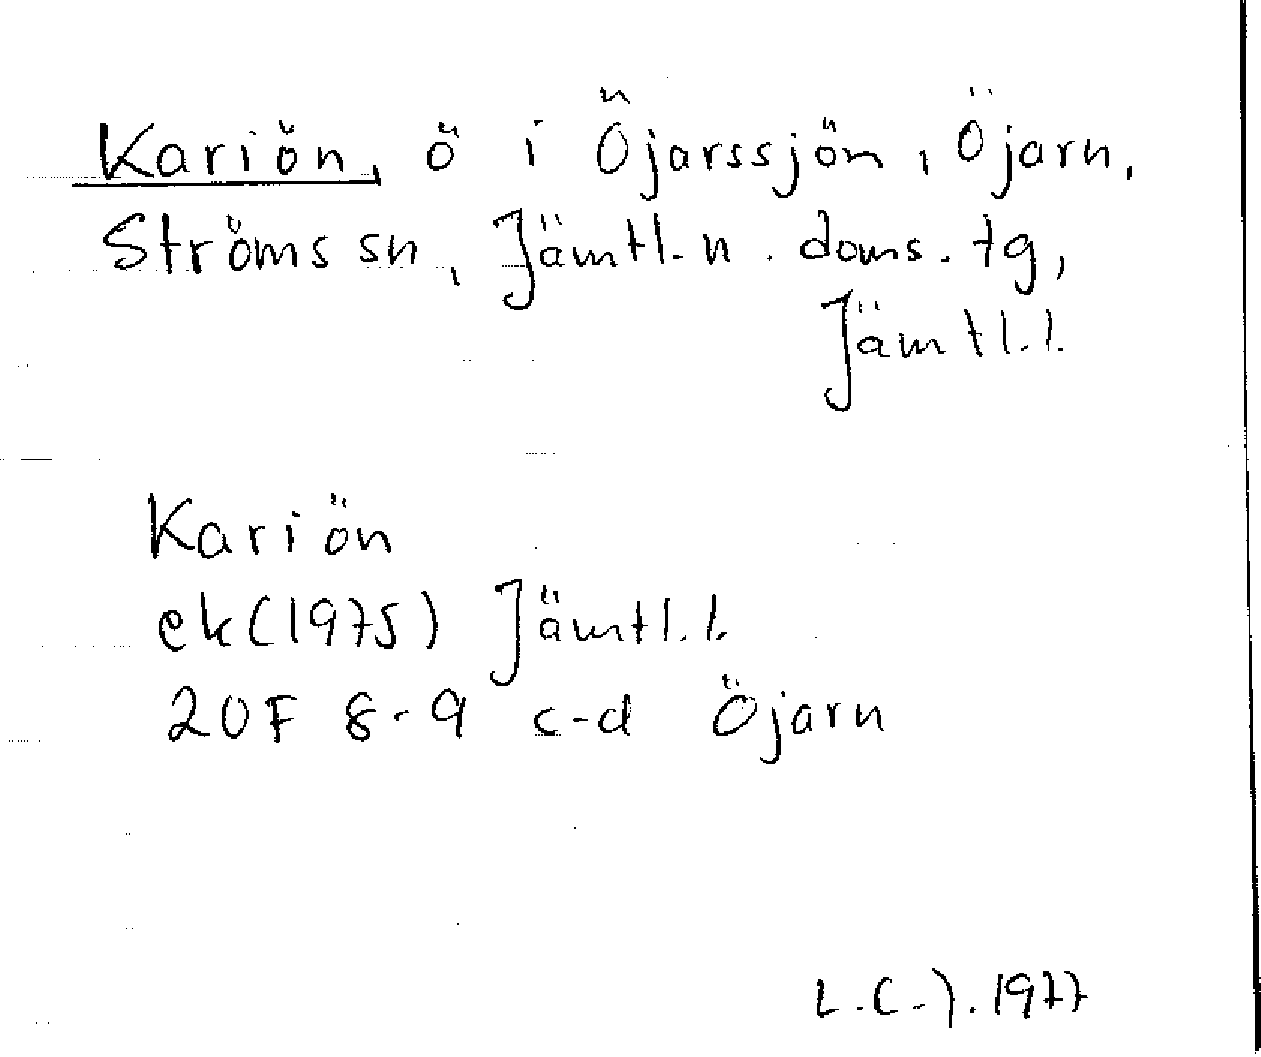 Kariön, ö i Öjarssjön, Öjarn,
Ströms sn, Jämtl. n. doms. tg,
Jämtl. l.
Kariön
ek (1975) Jämtl. l.
20F 8-9 c-d Öjarn
1977